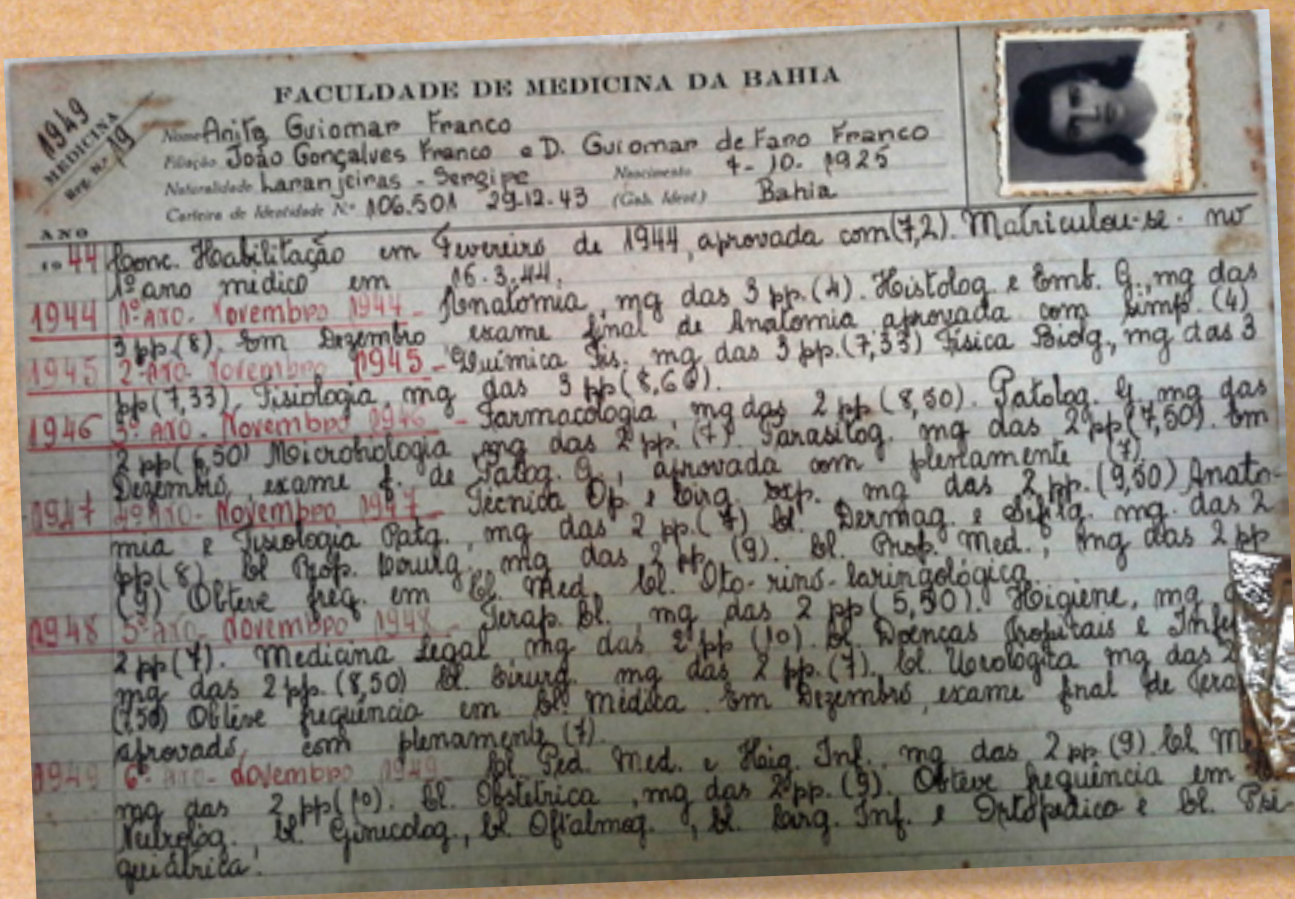 FACULDADE DE MEDICINA DA BAHIA
1949
MEDICINA
Reg. N.º 19
Nome Anita Guiomar Franco
Filiação João Gonçalves Franco e D. Guiomar de Faro Franco
Naturalidade Laranjeiras - Sergipe Nascimento 4-10-1925
Carteira de Identidade Nº 106.501 29-12-43 (Gab. Ident.) Bahia
ANO
1944 Conc. Habilitação em Fevereiro de 1944, aprovada com (7,2). Matriculou-se no
1º ano médico em 16.3.44.
1944 1º ano. Novembro 1944 - Anatomia, mg das 3 pp. (4). Histolog e Emb. G., mg das
3 pp. (8). Em Dezembro exame final de Anatomia aprovada com simp. (4)
1945 2º ano. Novembro 1945 - Química Fis. mg das 3 pp. (7,33) Física Biolg, mg das 3
pp (7,33). Fisiologia, mg das 3 pp (8,66).
1946 3º ano. Novembro 1946 - Farmacologia, mg das 2 pp (8,50). Patolog. G. mg das
2 pp (6,50) Microbiologia mg das 2 pp. (7). Parasitog. mg das 2 pp (7,50). Em
Dezembro, exame f. de Patog. G., aprovada com plenamente (7).
1947 4º ano. Novembro 1947 - Técnica Op. e Cirg. Exp. mg das 2 pp. (9,50) Anato-
mia e Fisiologia Patg., mg das 2 pp. (7) Cl. Dermag. e Sifilg. mg. das 2
pp (8) Cl. Prop. Cirurg., mg das 2 pp. (9). Cl. Prop. Med., mg das 2 pp
(9) Obteve freq. em Cl. Med., Cl. Oto-rino-laringológica.
1948 5º ano. Novembro 1948 - Terap. Cl. mg das 2 pp (5,50). Higiene, mg
2 pp (7). Medicina Legal, mg das 2 pp (10) Cl. Doenças Tropicais e
mg das 2 pp. (8,50) Cl. Cirurg. mg das 2 pp. (7). Cl. Urológica mg das 2
(7,50) Obteve frequência em Cl. Médica. Em Dezembro, exame final de
aprovado, com plenamente (7).
1949 6º ano. Novembro 1949 - Cl. Ped. Med. e Hig. Inf. mg das 2 pp. (9) Cl.
mg das 2 pp (10). Cl. Obstétrica, mg das 2 pp. (9). Obteve frequência em
Neurolog., Cl. Ginecolog., Cl. Oftalmog., Cl. Cirg. Inf. e Ortopédico e Cl. Psi-
quiátrica.